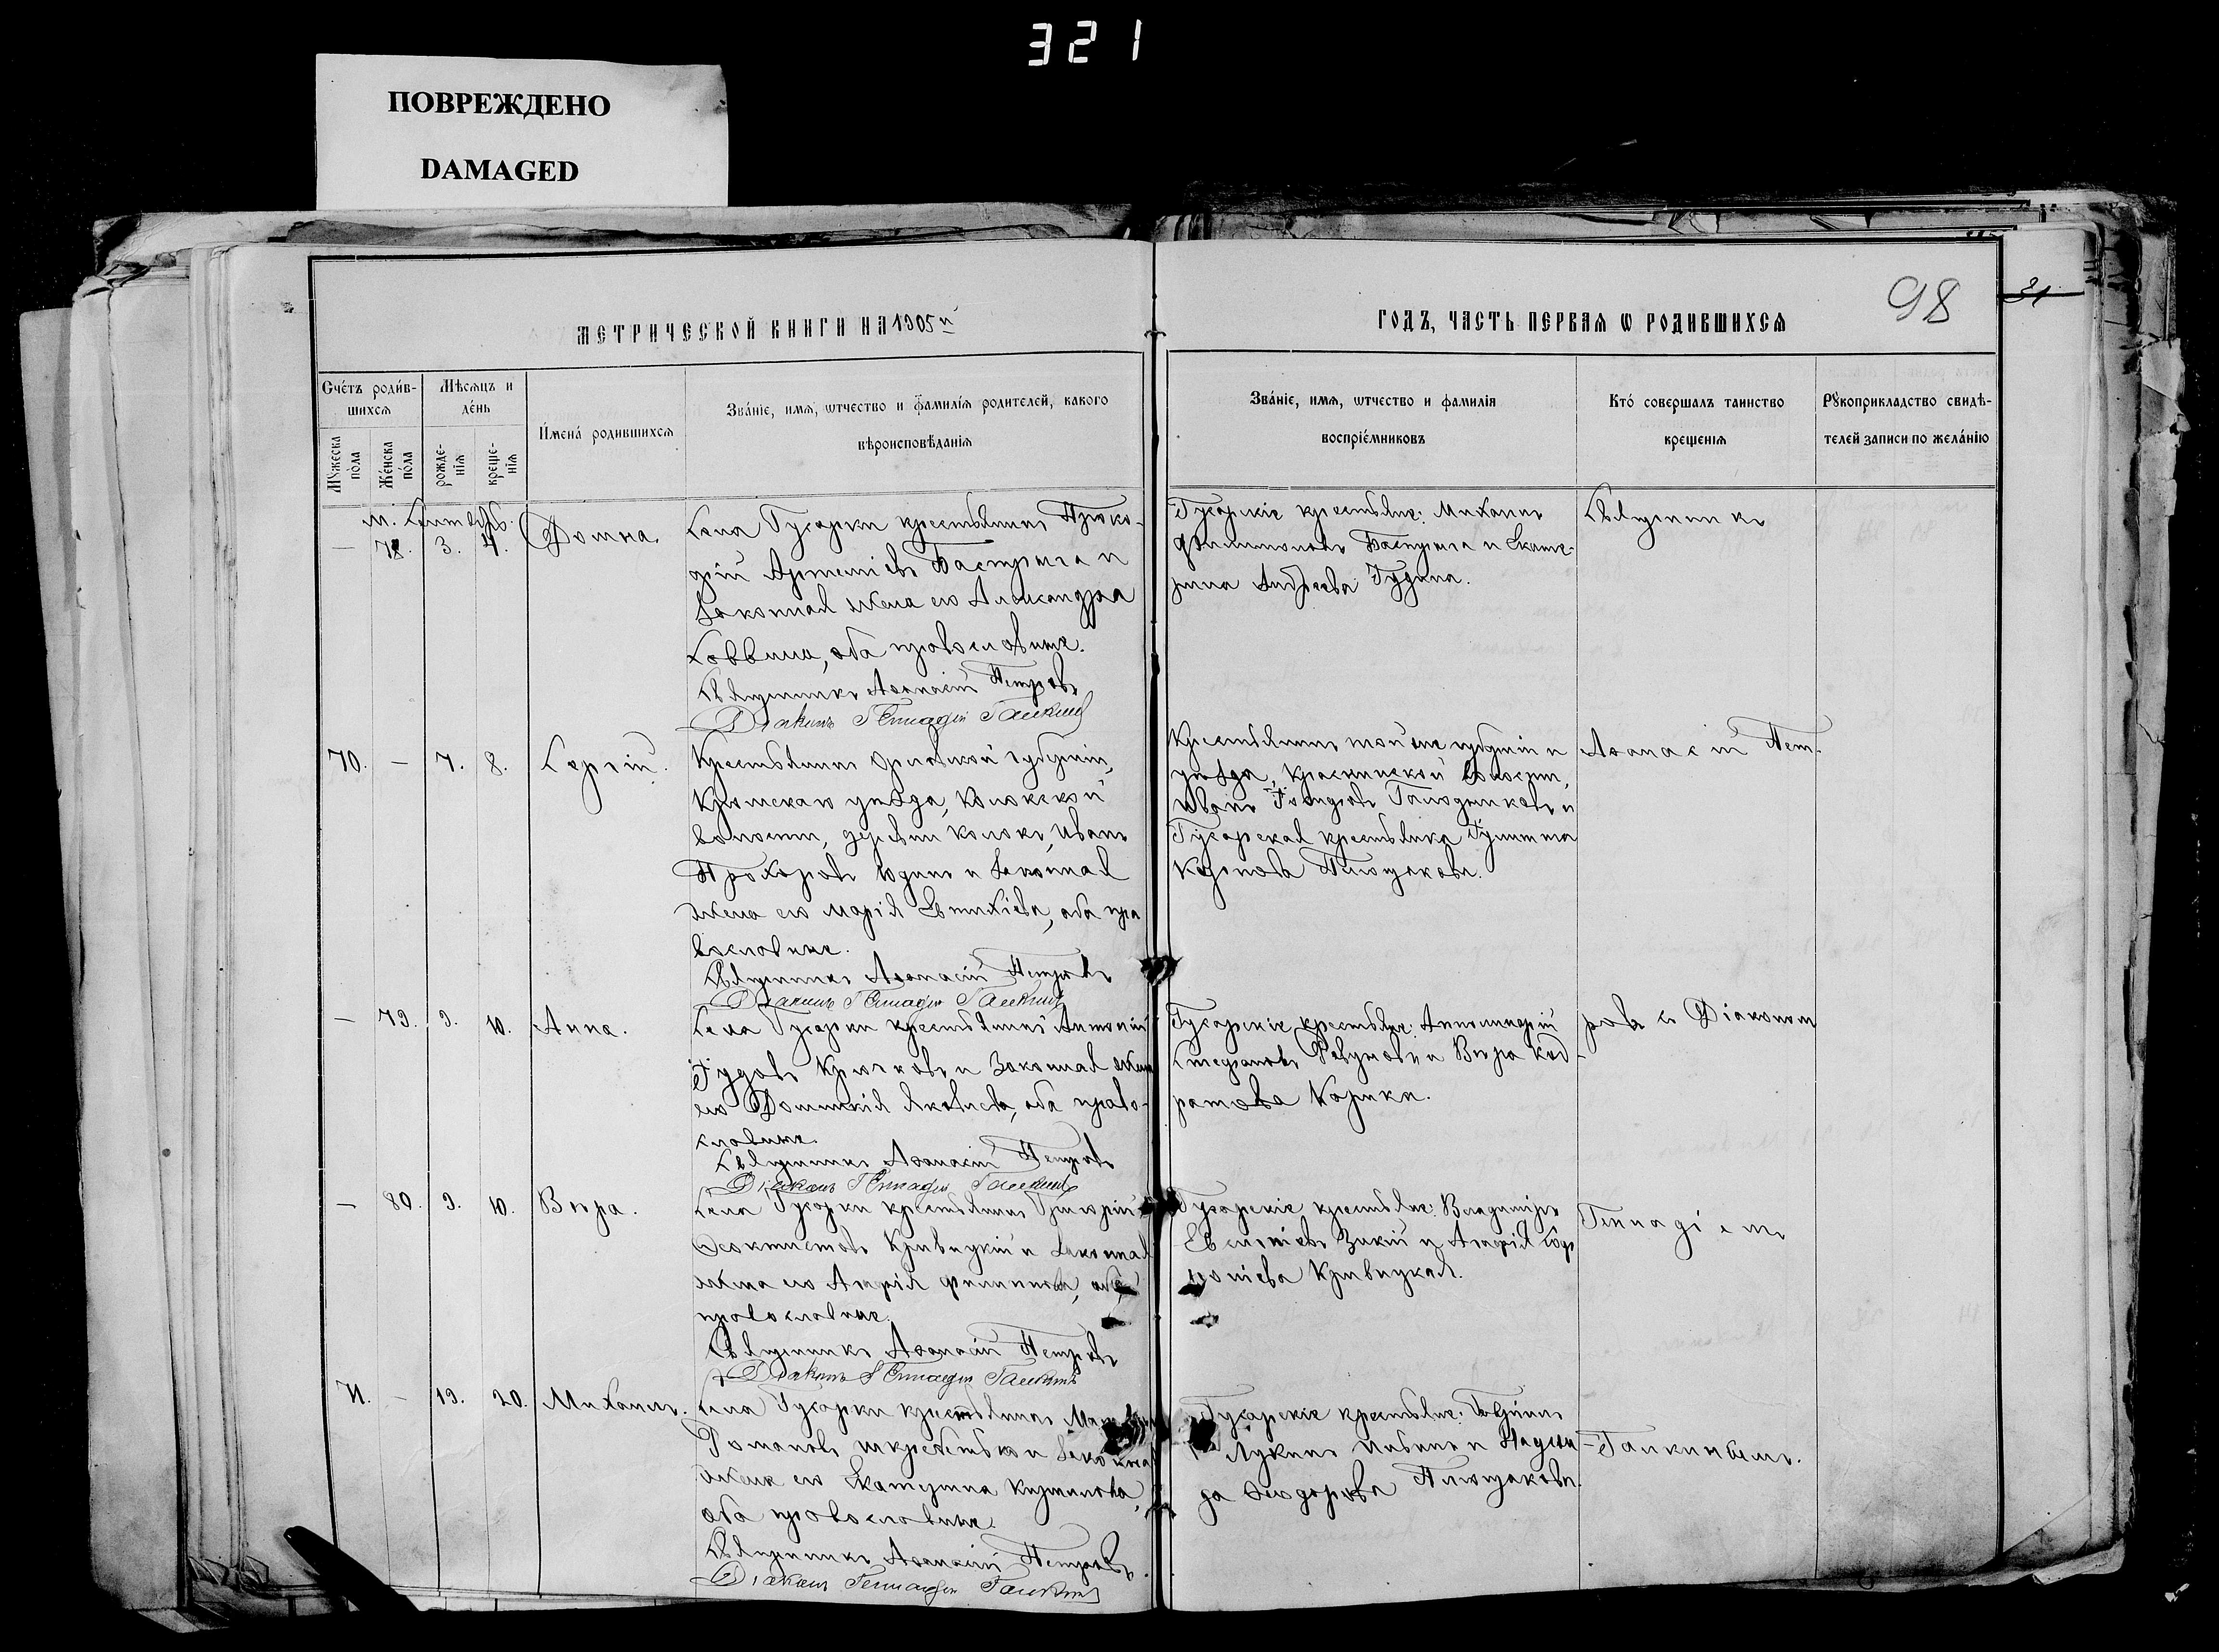 321
ПОВРЕЖДЕНО
DAMAGED
98
31
МЕТРИЧЕСКОЙ КНИГИ НА 1905й
ГОДЪ, ЧАСТЬ ПЕРВАЯ Ѡ РОДИВШИХСЯ
Счетъ родив-
шихся
Мѣсяцъ и
день
Мужеска
пола
Женска
пола
рожде-
нія
креще-
нія
Имена родившихся
Званіе, имя, ѿчество и фамилія родителей, какого
вѣроисповѣданія
Званіе, имя, ѿчество и фамилія
воспріемниковъ
Кто совершалъ таинство
крещенія
Рукоприкладство свидѣ-
телей записи по желанію
м. Сентябрь.
— 78. 3. 4. Домна.
Села Гусарки крестьянинъ
Артеміевъ Бастрыга и
законная жена его Александра
Саввина, оба православные.
Священникъ Аѳанасій Петровъ
Діаконъ Геннадій Галкинъ
Гусарскіе крестьяне: Михаилъ
Филимоновъ Бастрыга и Екате-
рина Андреева Гудина.
Священникъ
70. — 7. 8. Сергій.
Крестьянинъ Орловской губерніи,
Кромскаго уѣзда, Колокской
волости, деревни Колокъ, Иванъ
Прохоровъ Юдинъ и законная
жена его Марія Евтихіева, оба пра
вославные.
Священникъ Аѳанасій Петровъ
Діаконъ Геннадій Галкинъ
Крестьянинъ той же губерніи и
уѣзда, волости,
Иванъ Голодниковъ и
Гусарская крестьянка
Карпова Плющакова.
Аѳанасій Пет-
— 79. 9. 10. Анна.
Села Гусарки крестьянинъ Антоній
Крючковъ и законная жена
его Домникія Яковлева, оба право-
славные.
Священникъ Аѳанасій Петровъ
Діаконъ Геннадій Галкинъ
Гусарскіе крестьяне: Апполинарій
Стефановъ Ревуновъ и Вѣра Код-
ратова Корики.
ровъ съ Діакономъ
— 80. 9. 10. Вѣра.
Села Гусарки крестьянинъ Григорій
Ѳеоктистовъ Кривицкій и законная
жена его Агрія Филиппова, оба
православные.
Священникъ Аѳанасій Петровъ
Діаконъ Геннадій Галкинъ
Гусарскіе крестьяне: Владиміръ
Зикій и
Кривицкая.
Геннадіемъ
71. — 19. 20. Михаилъ.
Села Гусарки крестьянинъ
Романовъ и законная
жена его Екатерина Кузминова,
оба православные.
Священникъ Аѳанасій Петровъ.
Діаконъ Геннадій Галкинъ
Гусарскіе крестьяне:
Лукинъ и Надеж-
да Ѳеодорова Плющакова.
Галкинымъ.